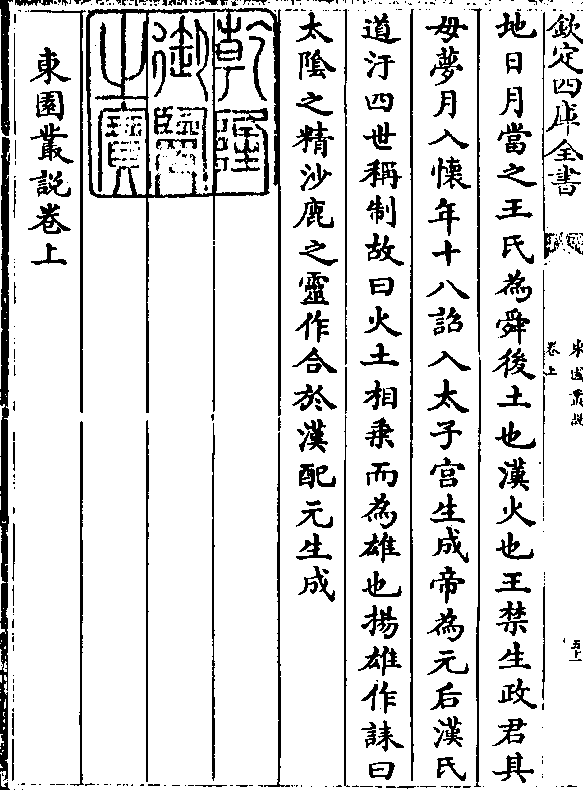 欽定四庫全書
東園叢說
卷上
地日月當之王氏為舜後土也漢火也王禁生政君其
母夢月入懷年十八詔入太子宮生成帝為元后漢氏
道汙四世稱制故曰火土相乗而為雄也揚雄作誄曰
太隂之精沙鹿之靈作合於漢配元生成
乾隆御覽之寶
東園叢說卷上